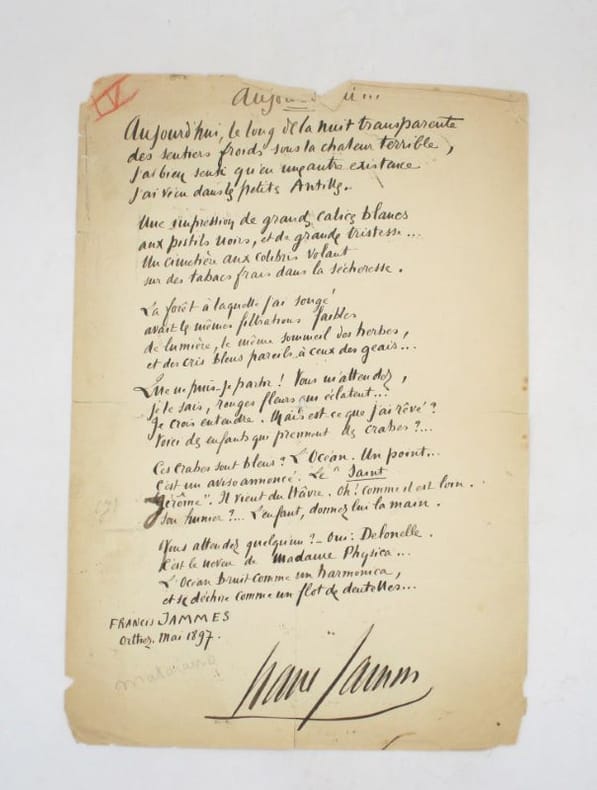 IV
Aujourd'hui...
Aujourd'hui, le long de la nuit transparente
des sentiers froids sous la chaleur terrible,
j'ai bien senti qu'en une autre existence
j'ai vécu dans les petites Antilles.
Une impression de grands calices blancs
aux pistils noirs, et de grande tristesse...
Un cimetière aux colibris volant
sur des tabacs frais dans la sécheresse.
La forêt à laquelle j'ai songé
avait les mêmes filtrations faibles
de lumière, le même sommeil des herbes,
et des cris bleus pareils à ceux des geais...
Que ne puis-je partir! Vous m'attendez,
je le sais, rouges fleurs qui éclatent...
Je crois entendre. Mais est ce que j'ai rêvé?
Voici des enfants qui prennent des crabes?...
Ces crabes sont bleus? L'Océan. Un point...
C'est un aviso annoncé. Le "Saint
Jérôme". Il vient du Hâvre. Oh! comme il est loin.
Son humier?... L'enfant, donnez lui la main.
Vous attendez quelqu'un? - Oui: Delonelle.
C'est le neveu de Madame Physica...
L'Océan bruit comme un harmonica,
et se déchire comme un flot de dentelles...
FRANCIS JAMMES
Orthez. Mai 1897.
Francis Jammes